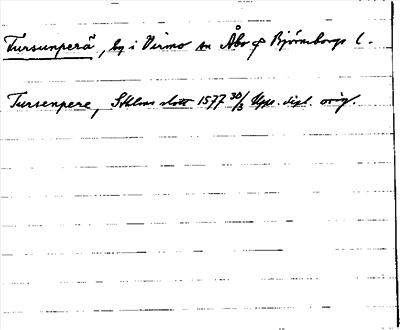 Tursunperä, by i Virmo sn Åbo o Björneborgs l.
Tursenpere, Sthlms slott 1577 30/3 Upps. dipl. orig.